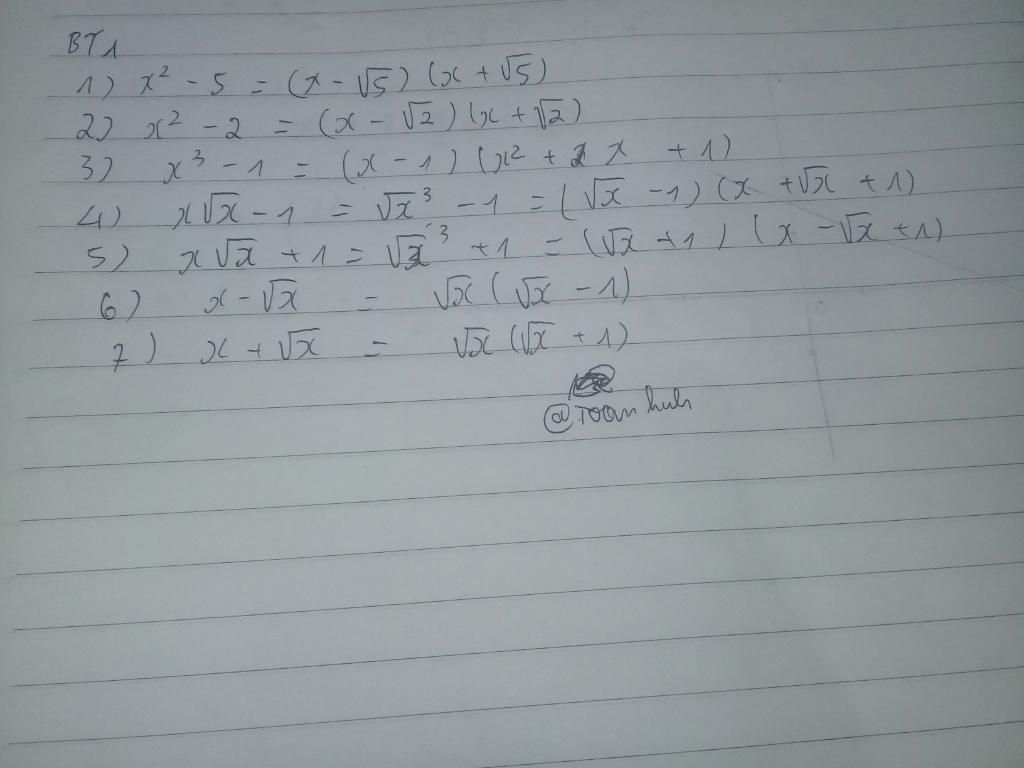 BT1
1) x² - 5 = (x - √5) (x + √5)
2) x² - 2 = (x - √2) (x + √2)
3) x³ - 1 = (x - 1) (x² + x + 1)
4) x√x - 1 = √x³ - 1 = (√x - 1) (x + √x + 1)
5) x√x + 1 = √x³ + 1 = (√x + 1) (x - √x + 1)
6) x - √x = √x (√x - 1)
7) x + √x = √x (√x + 1)
@Toán huh